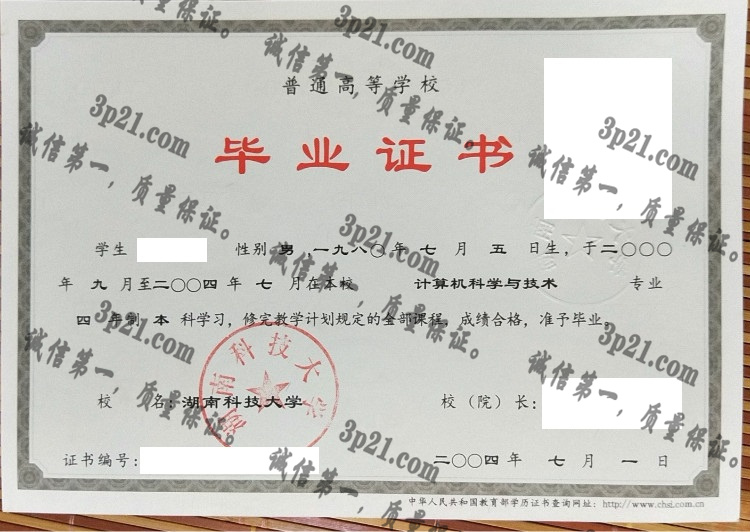 普通高等学校
毕业证书
学生 性别 男 一九八〇年 七 月 五 日生，于二〇〇〇
年 九 月至二〇〇四 年 七 月在本校 计算机科学与技术 专业
四 年制 本 科学习，修完教学计划规定的全部课程，成绩合格，准予毕业。
校 名：湖南科技大学 校（院）长：
湖南科技大学
证书编号： 二〇〇四 年 七 月 一 日
中华人民共和国教育部学历证书查询网址：http://www.chsi.com.cn
3p21.com
诚信第一，质量保证。
3p21.com
诚信第一，质量保证。
3p21.com
诚信第一，质量保证。
3p21.com
诚信第一，质量保证。
3p21.com
诚信第一，质量保证。
3p21.com
诚信第一，质量保证。
3p21.com
诚信第一，质量保证。
3p21.com
诚信第一，